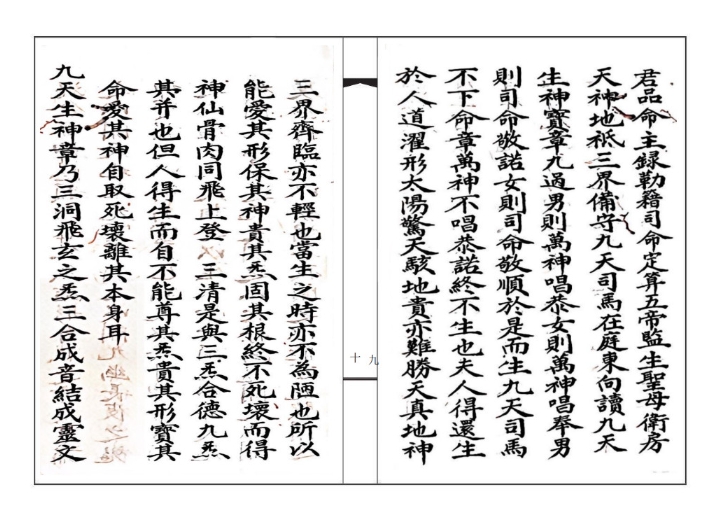 君品命主錄勒籍司命定算五帝監生聖母衛房
天神地祇三界備守九天司馬在庭東向讀九天
生神寶章九過男則萬神唱恭女則萬神唱奉男
則司命敬諾女則司命敬順於是而生九天司馬
不下命章萬神不唱恭諾終不生也夫人得還生
於人道濯形太陽驚天駭地貴亦難勝天真地神
九十
三界齊臨亦不輕也當生之時亦不為陋也所以
能愛其形保其神貴其炁固其根終不死壞而得
神仙骨肉同飛上登 三清是與三炁合德九炁
其并也但人得生而自不能尊其炁貴其形寶其
命愛其神自取死壞離其本身耳
九天生神章乃三洞飛玄之炁三合成音結成靈文